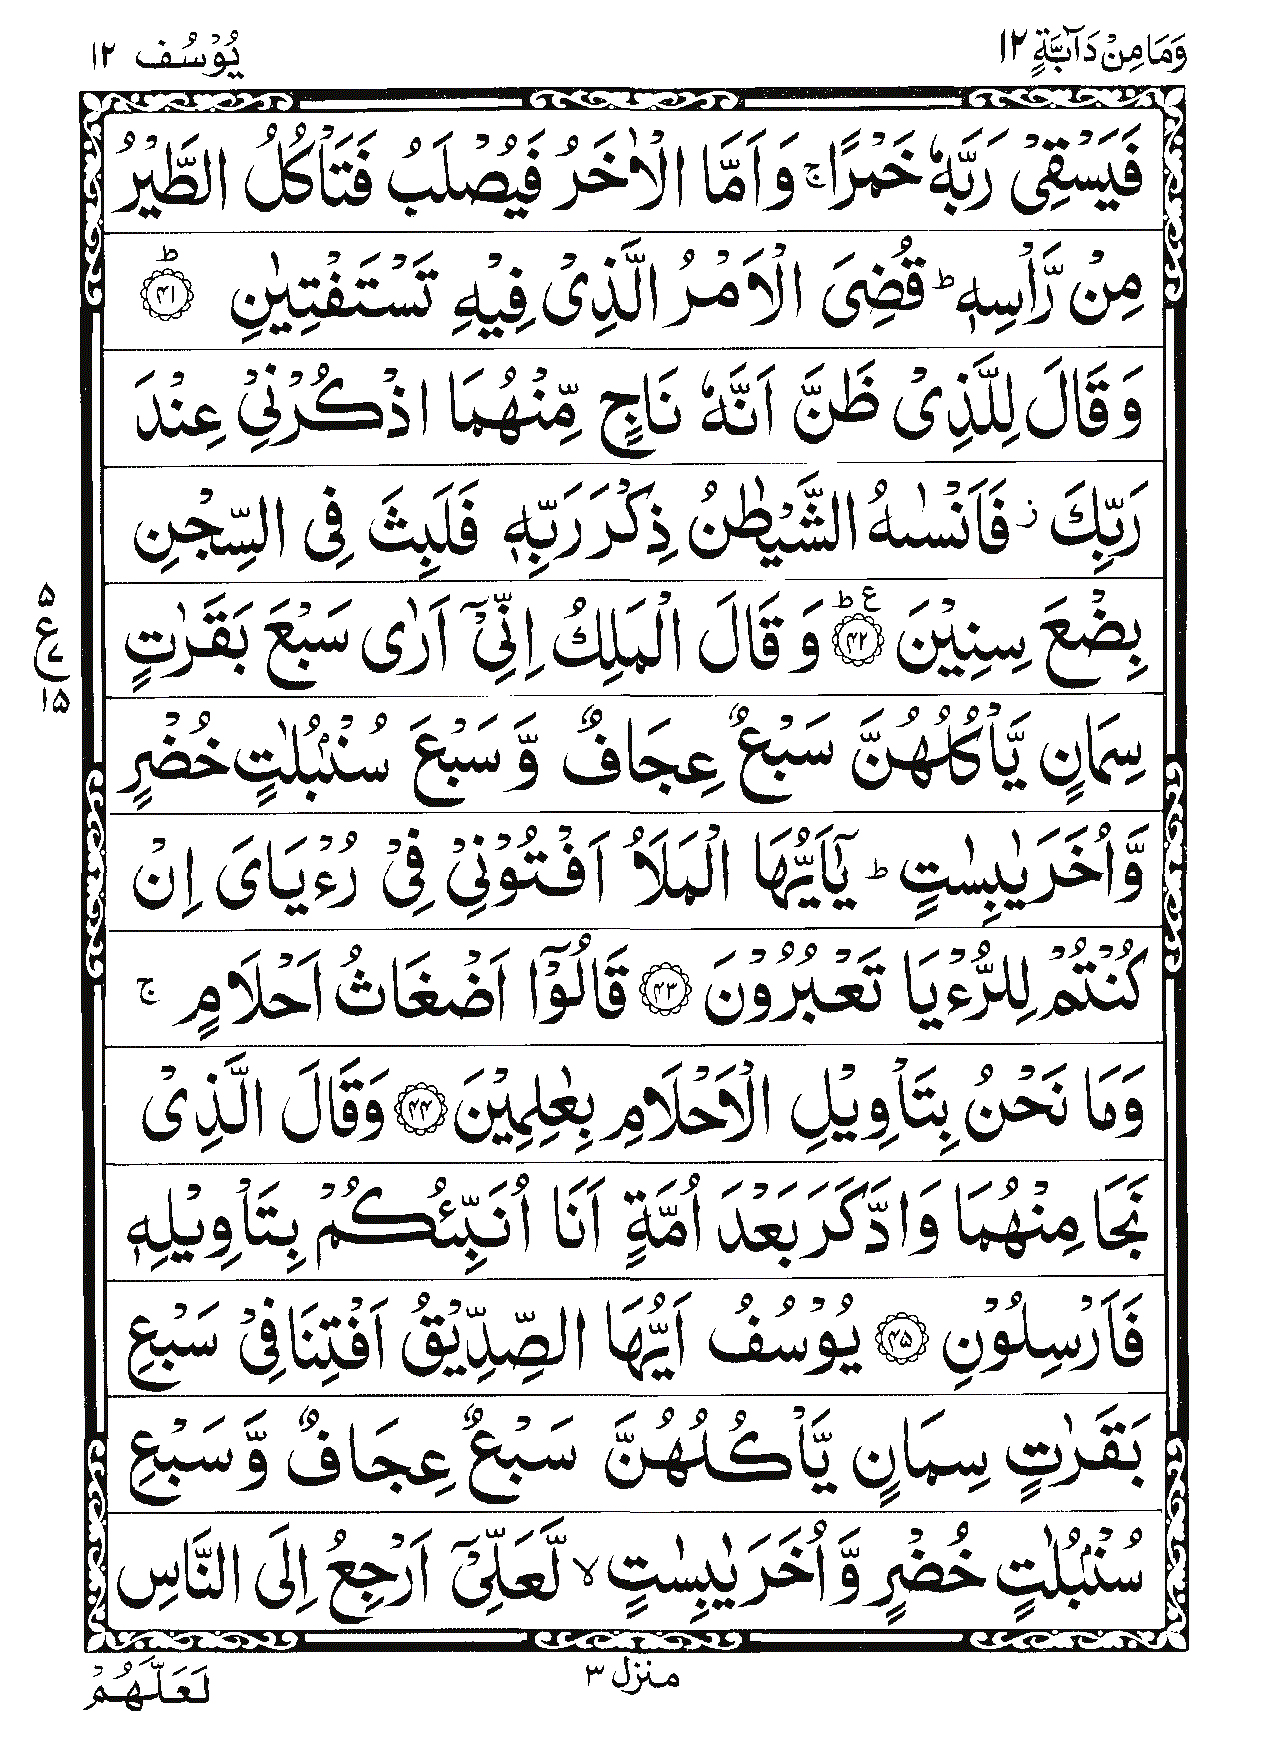 وَمَا مِنْ دَآبَّةٍ ١٢
يُوْسُف ١٢
فَيَسْقِيْ رَبَّهٗ خَمْرًا ۚ وَاَمَّا الْاٰخَرُ فَيُصْلَبُ فَتَاْكُلُ الطَّيْرُ
مِنْ رَّاْسِهٖ ؕ قُضِيَ الْاَمْرُ الَّذِيْ فِيْهِ تَسْتَفْتِيٰنِ ؕ ﴿۴۱﴾
وَقَالَ لِلَّذِيْ ظَنَّ اَنَّهٗ نَاجٍ مِّنْهُمَا اذْكُرْنِيْ عِنْدَ
رَبِّكَ ز فَاَنْسٰىهُ الشَّيْطٰنُ ذِكْرَ رَبِّهٖ فَلَبِثَ فِي السِّجْنِ
بِضْعَ سِنِيْنَ ؕ ع ﴿۴۲﴾ وَقَالَ الْمَلِكُ اِنِّيْٓ اَرٰى سَبْعَ بَقَرٰتٍ
۵
ع
۷
۱۵
سِمَانٍ يَّاْكُلُهُنَّ سَبْعٌ عِجَافٌ وَّسَبْعَ سُنْۢبُلٰتٍ خُضْرٍ
وَّاُخَرَ يٰبِسٰتٍ ؕ يٰٓاَيُّهَا الْمَلَاُ اَفْتُوْنِيْ فِيْ رُءْيَايَ اِنْ
كُنْتُمْ لِلرُّءْيَا تَعْبُرُوْنَ ﴿۴۳﴾ قَالُوْٓا اَضْغَاثُ اَحْلَامٍ ۚ
وَمَا نَحْنُ بِتَاْوِيْلِ الْاَحْلَامِ بِعٰلِمِيْنَ ﴿۴۴﴾ وَقَالَ الَّذِيْ
نَجَا مِنْهُمَا وَادَّكَرَ بَعْدَ اُمَّةٍ اَنَا اُنَبِّئُكُمْ بِتَاْوِيْلِهٖ
فَاَرْسِلُوْنِ ﴿۴۵﴾ يُوْسُفُ اَيُّهَا الصِّدِّيْقُ اَفْتِنَا فِيْ سَبْعِ
بَقَرٰتٍ سِمَانٍ يَّاْكُلُهُنَّ سَبْعٌ عِجَافٌ وَّسَبْعِ
سُنْۢبُلٰتٍ خُضْرٍ وَّاُخَرَ يٰبِسٰتٍ ۙ لَّعَلِّيْٓ اَرْجِعُ اِلَى النَّاسِ
منزل ۳
لَعَلَّهُمْ